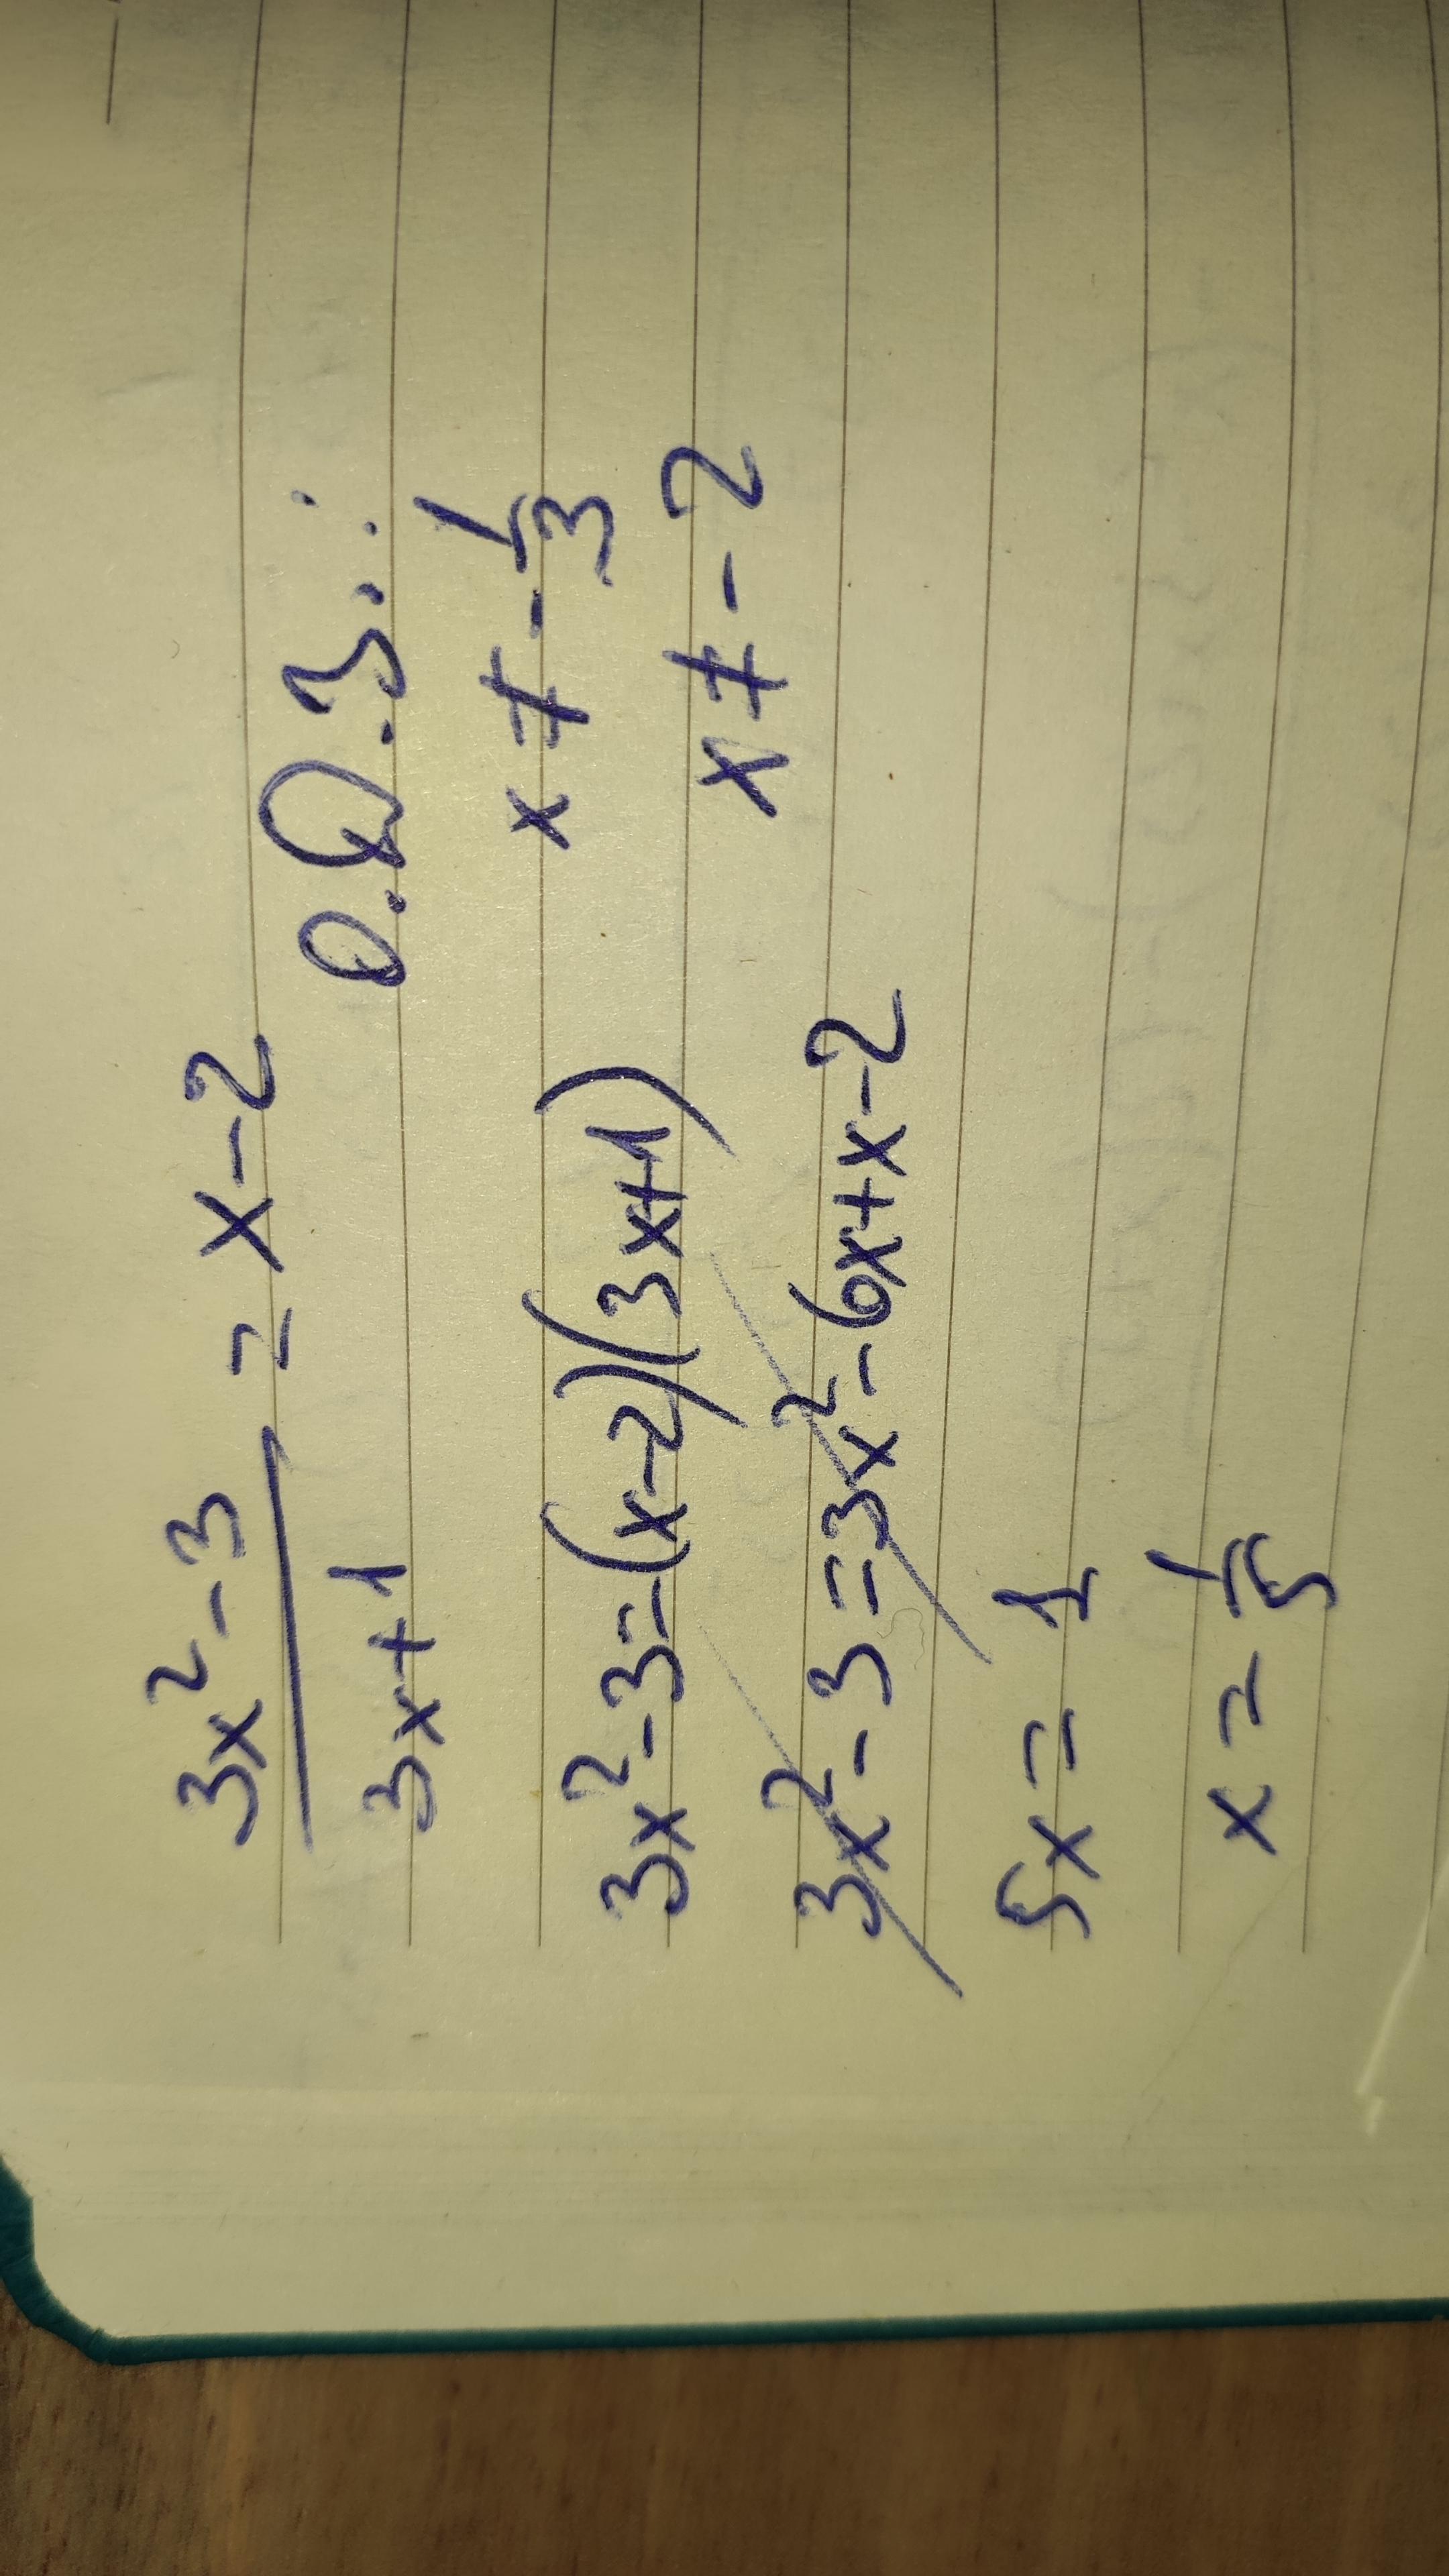 3x² - 3
3x + 1
= x - 2
О.Д.З.:
x ≠ - 1/3
x ≠ - 2
3x² - 3 = (x - 2)(3x + 1)
3x² - 3 = 3x² - 6x + x - 2
5x = 1
x = 1/5